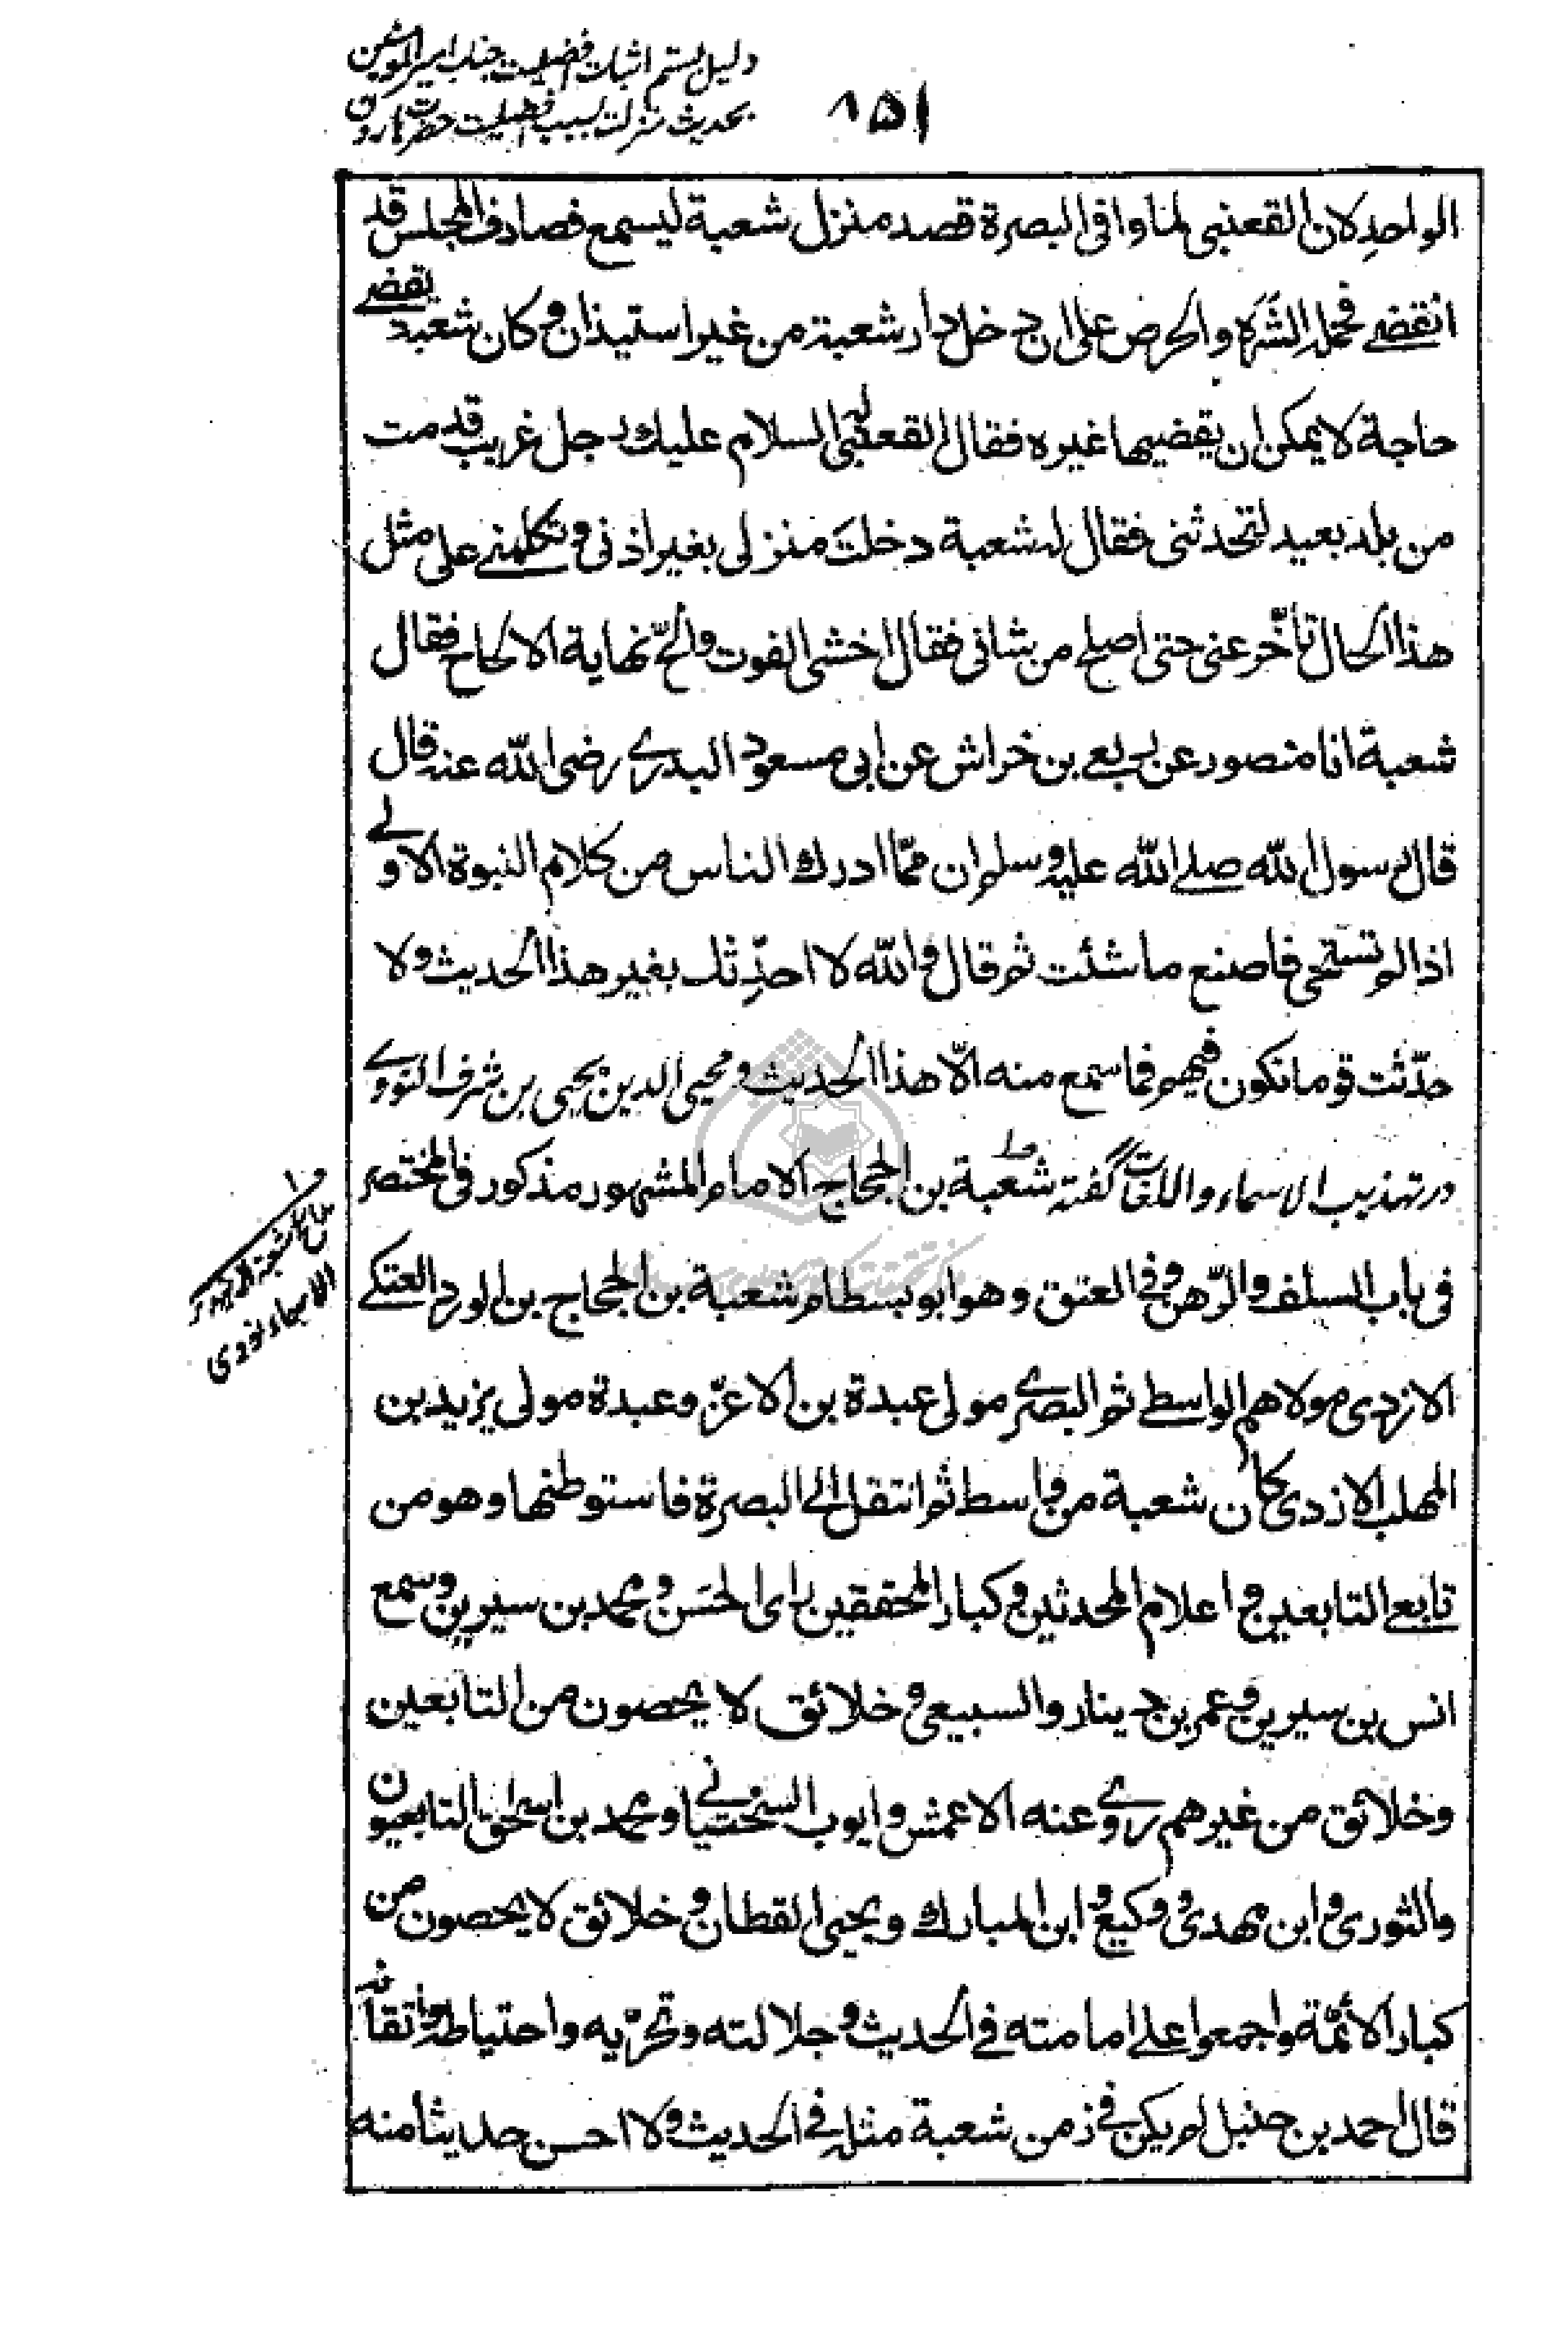 دلیل بستم اثبات افضلیت جناب امیر المومنین
بحدیث منزلت بسبب افضلیت حضرت هارون
۸۵۱
الواحد لان القعنبی لما وافی البصرة قصد منزل شعبة لیسمع فصادف المجلس قد
انقضے فحمله الشَرَه والحرص علی ان دخل دار شعبة من غیر استیذان و کان شعبة یقضے
حاجة لا یمکن ان یقضیها غیره فقال القعنبی السلام علیك رجل غریب قدمت
من بلد بعید لتحدثنی فقال له شعبة دخلتَ منزلی بغیر اذنی و تکلمنے علی مثل
هذا الحال تأخّر عنی حتی اصلح من شانی فقال اخشی الفوت و الحّ نهایة الالحاح فقال
شعبة انا منصور عن ربعے بن خراش عن ابی مسعود البدرے رضی الله عنه قال
قال رسول الله صلے الله علیه و سلم ان ممّا ادرك الناس من کلام النبوة الاولے
اذا لم تستحی فاصنع ما شئت ثم قال والله لا احدِّثك بغیر هذا الحدیث ولا
حدّثت قوما تکون فیهم فما سمع منه الّا هذا الحدیث و محیی الدین یحیی بن شرف النووے
در تهذیب الاسماء واللغات گفته شعبة بن الحجاج الامام المشهور مذکور فی المختصر
فی باب السلف والرّهن و فی العتق و هو ابو بسطام شعبة بن الحجاج بن الورد العتکے
الازدی مولاهم الواسطے ثم البصرے مولی عبدة بن الاعزّ و عبدة مولی یزید بن
المهلب الازدی کان شعبة من واسط ثم انتقل الی البصرة فاستوطنها و هو من
تابعے التابعین و اعلام المحدثین و کبار المحققین رای الحسَن و محمد بن سیرین و سمع
انس بن سیرین و عمر بن دینار والسبیعی و خلائق لا یحصون من التابعین
و خلائق من غیرهم روے عنه الاعمش و ایوب السختیانے و محمد بن اسحق التابعیون
والثوری و ابن مهدی و وکیع و ابن المبارك و یحیی القطان و خلائق لا یحصون من
کبار الأئمّة واجمعوا علے امامته فے الحدیث و جلالته و تحرّیه و احتیاطه و اتقانه
قال احمد بن حنبل لم یکن فے زمن شعبة مثله فے الحدیث ولا احسن حدیثاً منه
الاسماء نووی